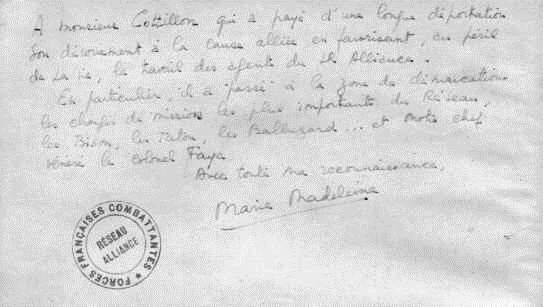 A monsieur Cottillon qui a payé d'une longue déportation
son dévouement à la cause alliée en favorisant, au péril
de sa vie, le travail des agents du Alliance.
En particulier, il a "passé" à la zone de démarcation
les chargés de mission les plus importants du Réseau,
les les les ... et notre chef
vénéré le colonel Faye
Avec toute ma reconnaissance,
Marie Madeleine
FORCES FRANÇAISES COMBATTANTES
RÉSEAU
ALLIANCE